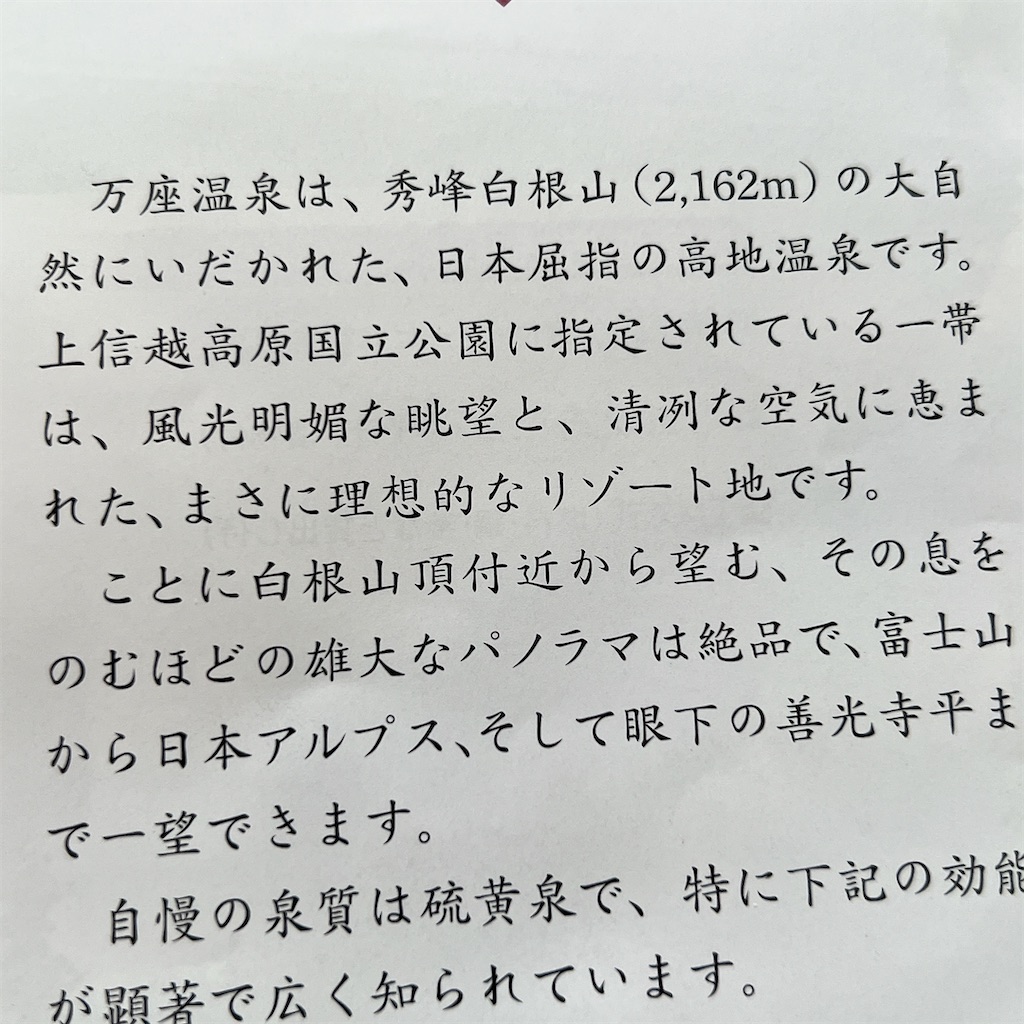 万座温泉は、秀峰白根山（2,162m）の大自
然にいだかれた、日本屈指の高地温泉です。
上信越高原国立公園に指定されている一帯
は、風光明媚な眺望と、清冽な空気に恵ま
れた、まさに理想的なリゾート地です。
ことに白根山頂付近から望む、その息を
のむほどの雄大なパノラマは絶品で、富士山
から日本アルプス、そして眼下の善光寺平ま
で一望できます。
自慢の泉質は硫黄泉で、特に下記の効能
が顕著で広く知られています。